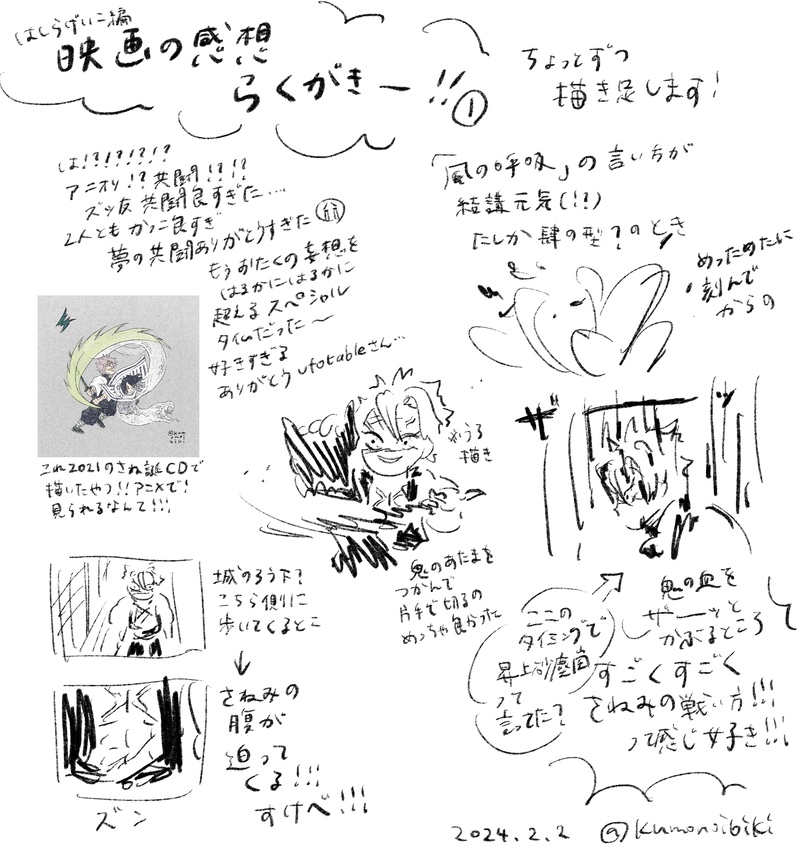 はしらげいこ編
映画の感想
らくがきー!!①
ちょっとずつ
描き足します!
は!?!?!?!?
アニオリ!?共闘!?!!
ズッ友共闘良すぎた…
2人ともかっこ良すぎ
夢の共闘ありがとうすぎた
もうおたくの妄想を
はるかにはるかに
超えるスペシャル
タイムだった〜
好きすぎる
ありがとうufotableさん…
これ2021のさね誕CDで
描いたやつ!!アニメで!
見られるなんて!!!
「風の呼吸」の言い方が
結講元気(!?)
たしか肆の型?のとき
めっためたに
刻んで
からの
※うろ
描き
ザ
ッ
鬼のあたまを
つかんで
片手で切るの
めっちゃ良かった
城のろう下?
こちら側に
歩いてくるとこ
さねみの
腹が
迫って
くる!!!
すけべ!!!
ズン
ここの
タイミングで
昇上砂塵嵐
って
言ってた?
鬼の血を
ザーッと
かぶるところ
すごくすごく
さねみの戦い方!!!
って感じ好き!!!
2024.2.2 @kumonoibiki